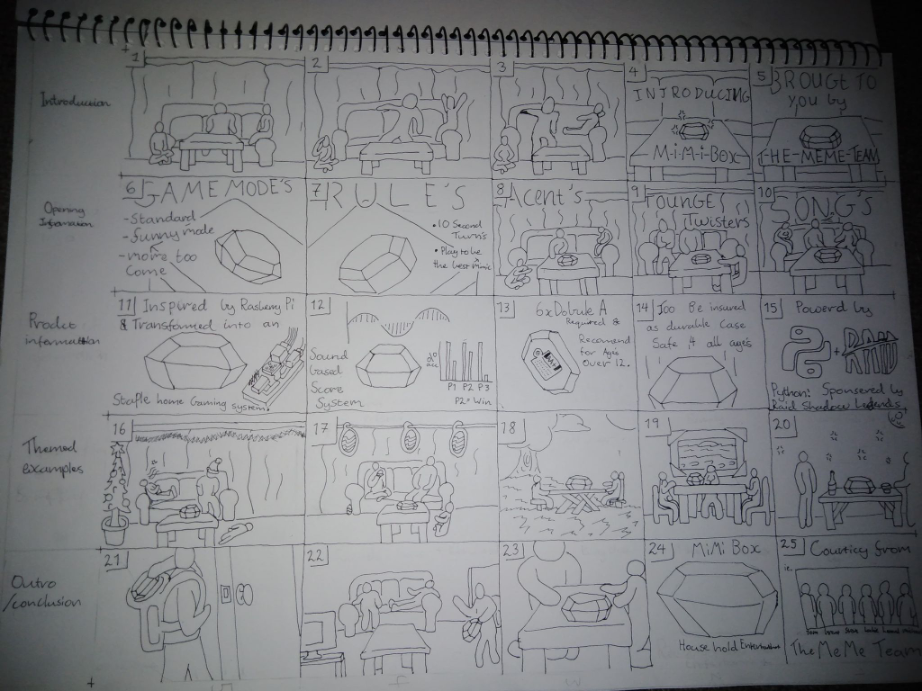 Introduction
1
2
3
4
INTRODUCING
M-i-M-i-BOX
5
BROUGT TO
you by
T-HE-MEME-TEAM
Opening
Information
6
GAMEMODE'S
-Standard
-funny mode
-more too
come
7
RULE'S
•10 Second
Turn's
•Play to be
the best mimic
8
Acent's
9
TOUNGE
Twisters
10
SONG'S
Product
information
11
Inspired by Rasberry Pi
& Transformed into an
Staple home Gaming system.
12
Sound
based
Score
System
P1 P2 P3
P2= Win
13
6x Dolbule A
Required &
Recomend
for Ages
Over 12.
14
Too Be insured
as durable Case
Safe 4 all ages
15
Powerd by
+
RAID
Python: Sponsered by
Raid Shadow Legends
Themed
Examples
16
17
18
19
20
Outro
/conclusion
21
22
23
24
MiMi BOX
House hold
25
Courticy from
ie.
The MeMe Team